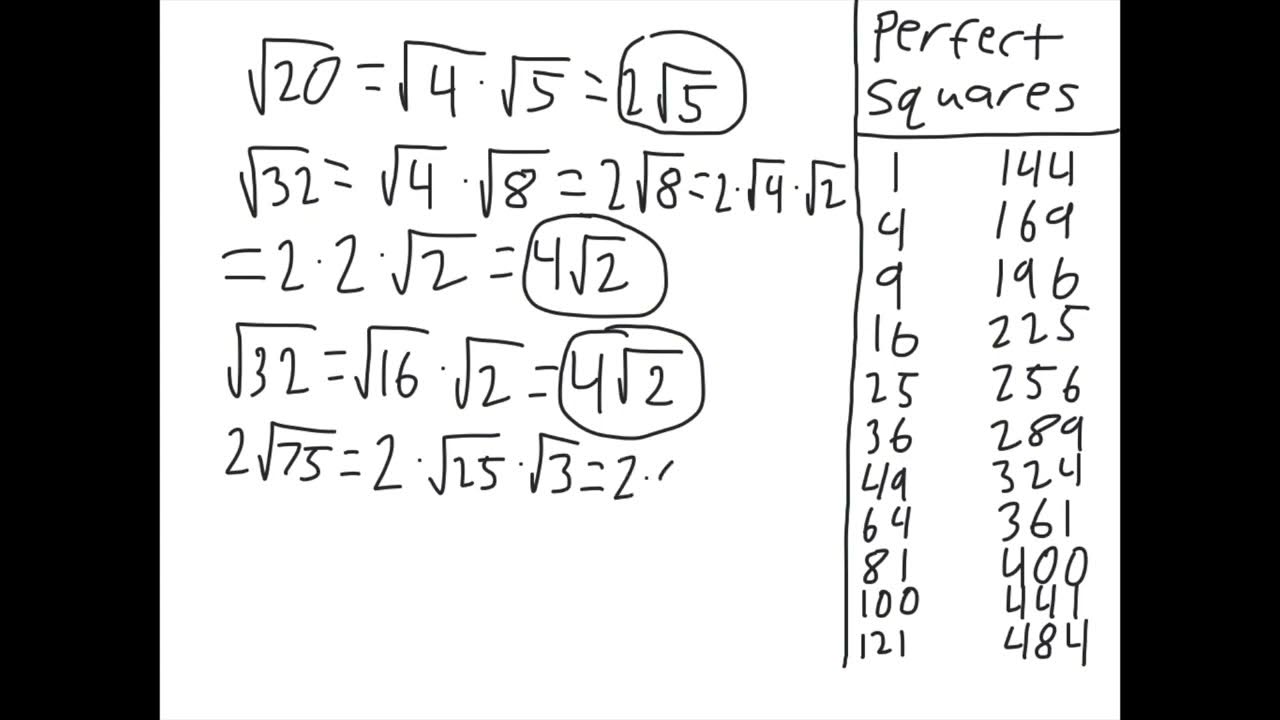 √20 = √4 · √5 = 2√5
√32 = √4 · √8 = 2√8 = 2 · √4 · √2
= 2 · 2 · √2 = 4√2
√32 = √16 · √2 = 4√2
2√75 = 2 · √25 · √3 = 2 ·
Perfect
Squares
1 144
4 169
9 196
16 225
25 256
36 289
49 324
64 361
81 400
100 441
121 484